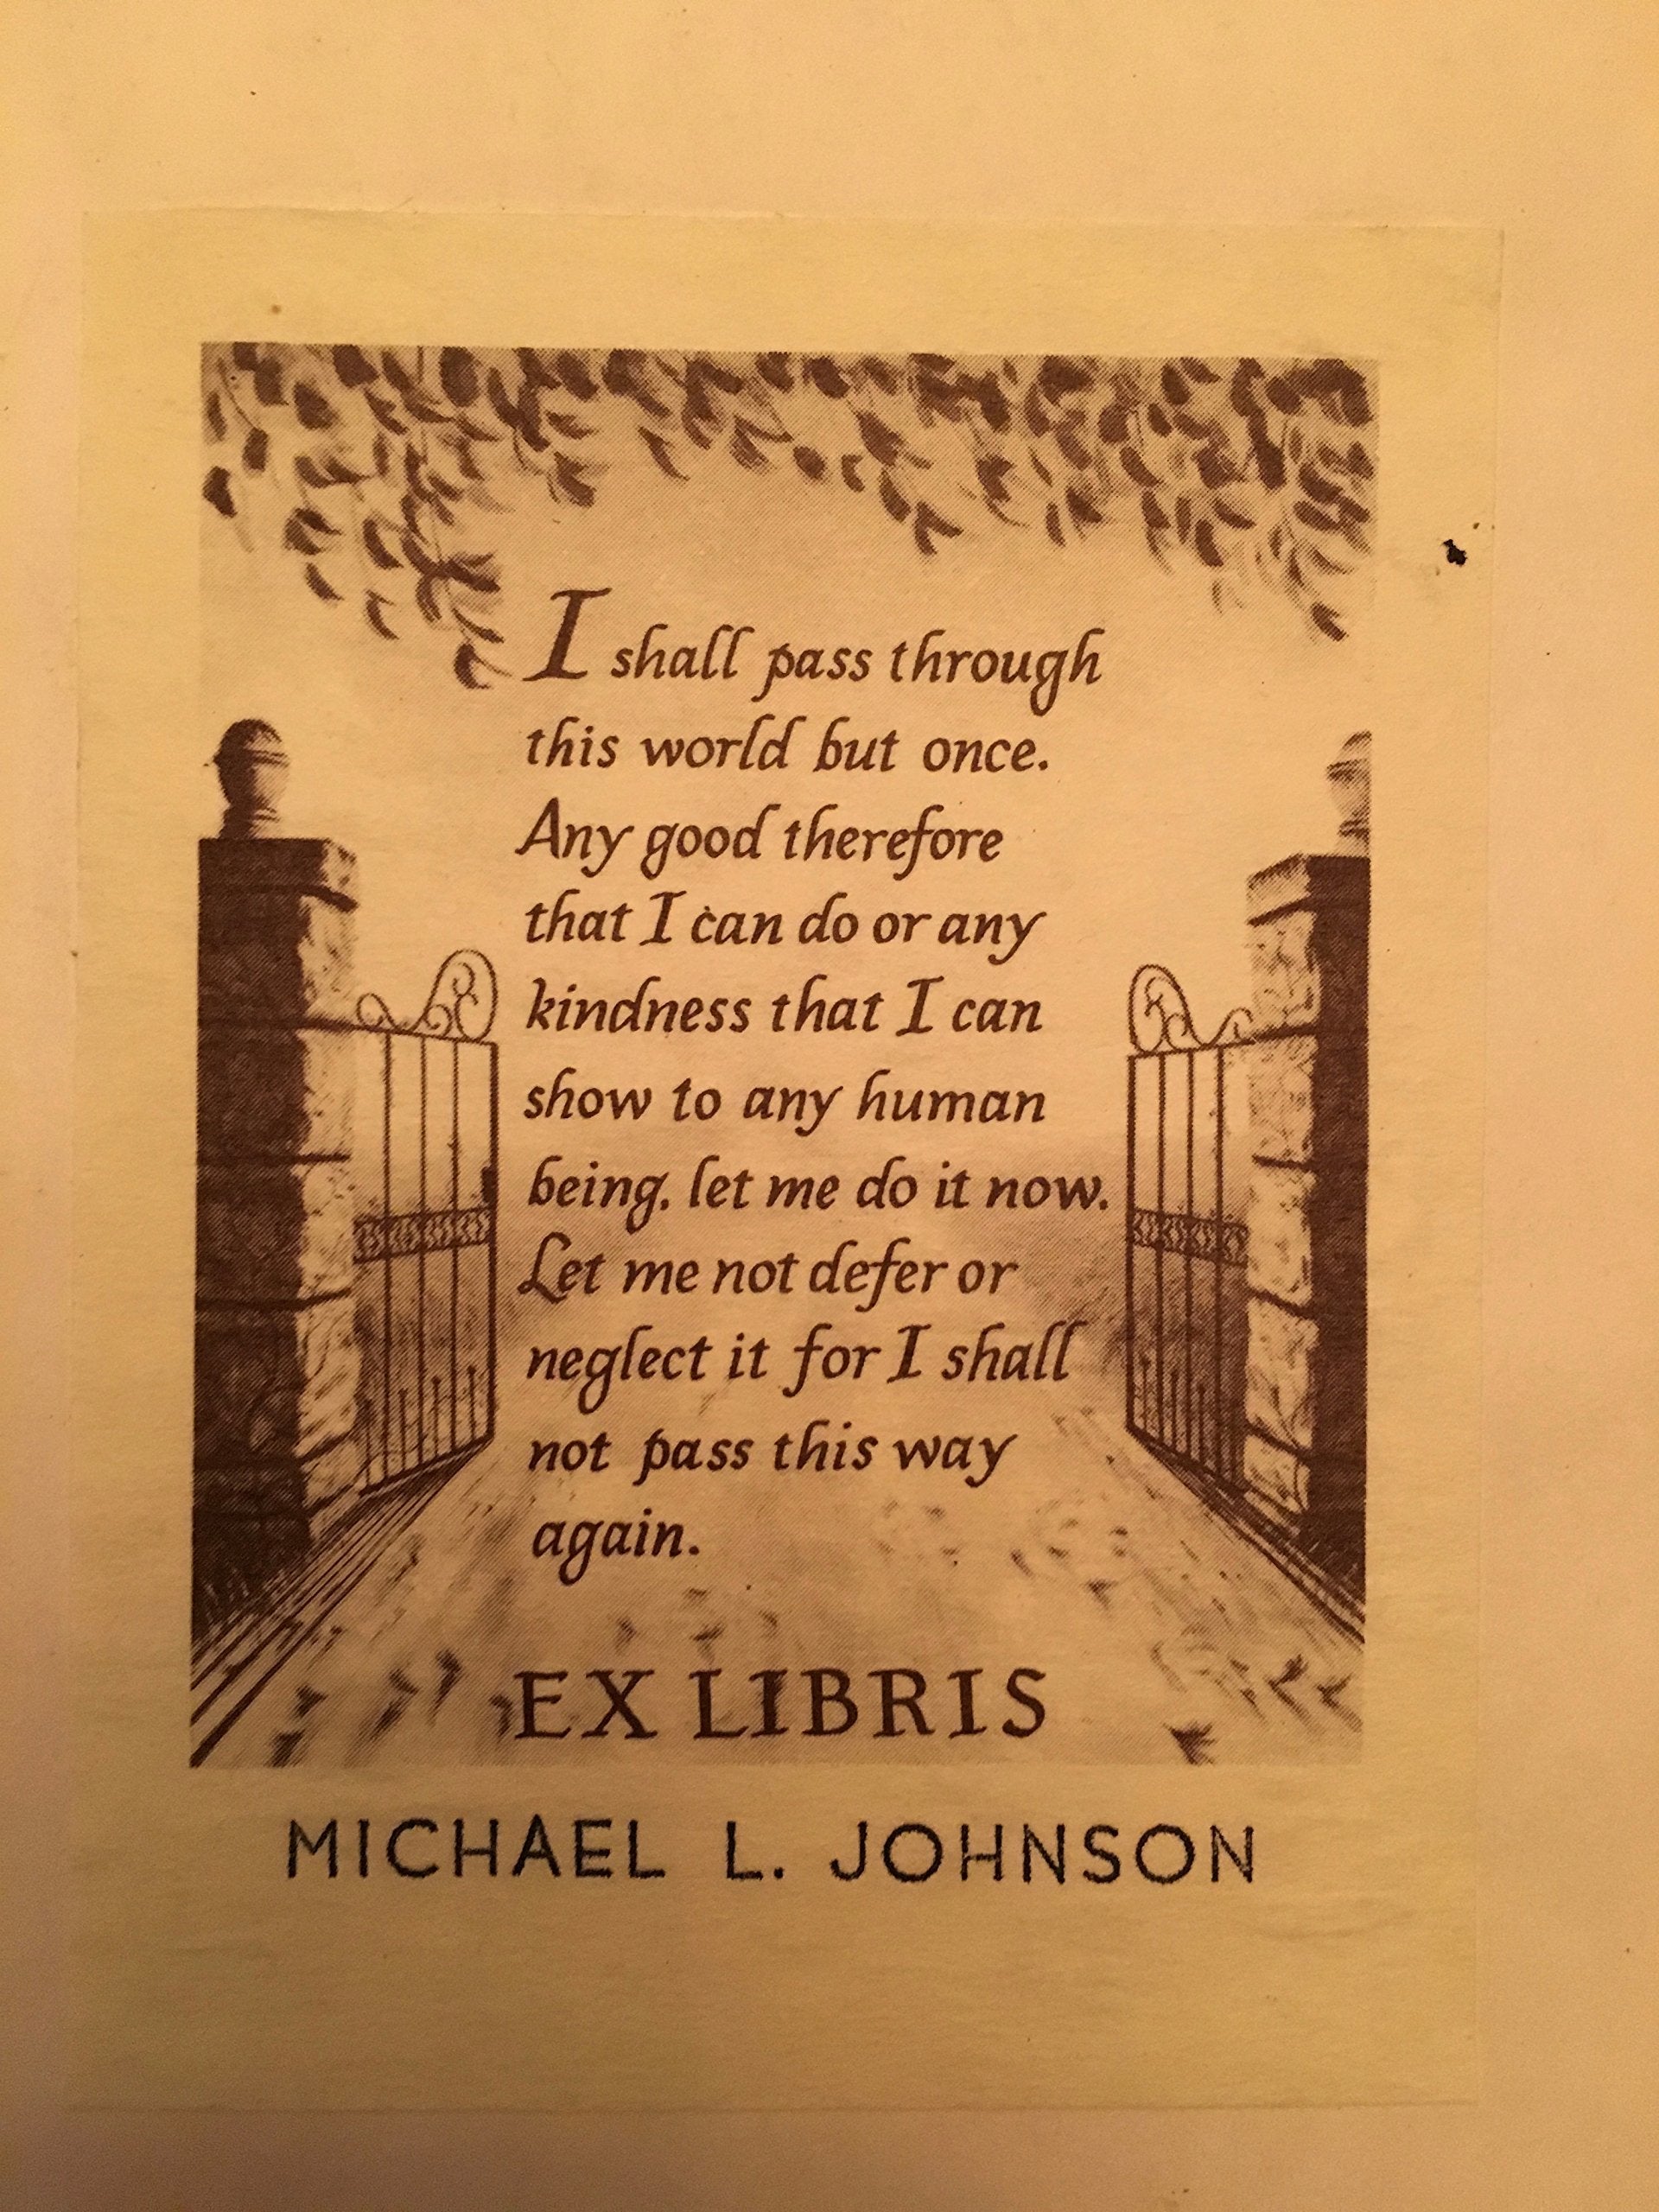 I shall pass through
this world but once.
Any good therefore
that I can do or any
kindness that I can
show to any human
being, let me do it now.
Let me not defer or
neglect it for I shall
not pass this way
again.
EX LIBRIS
MICHAEL L. JOHNSON